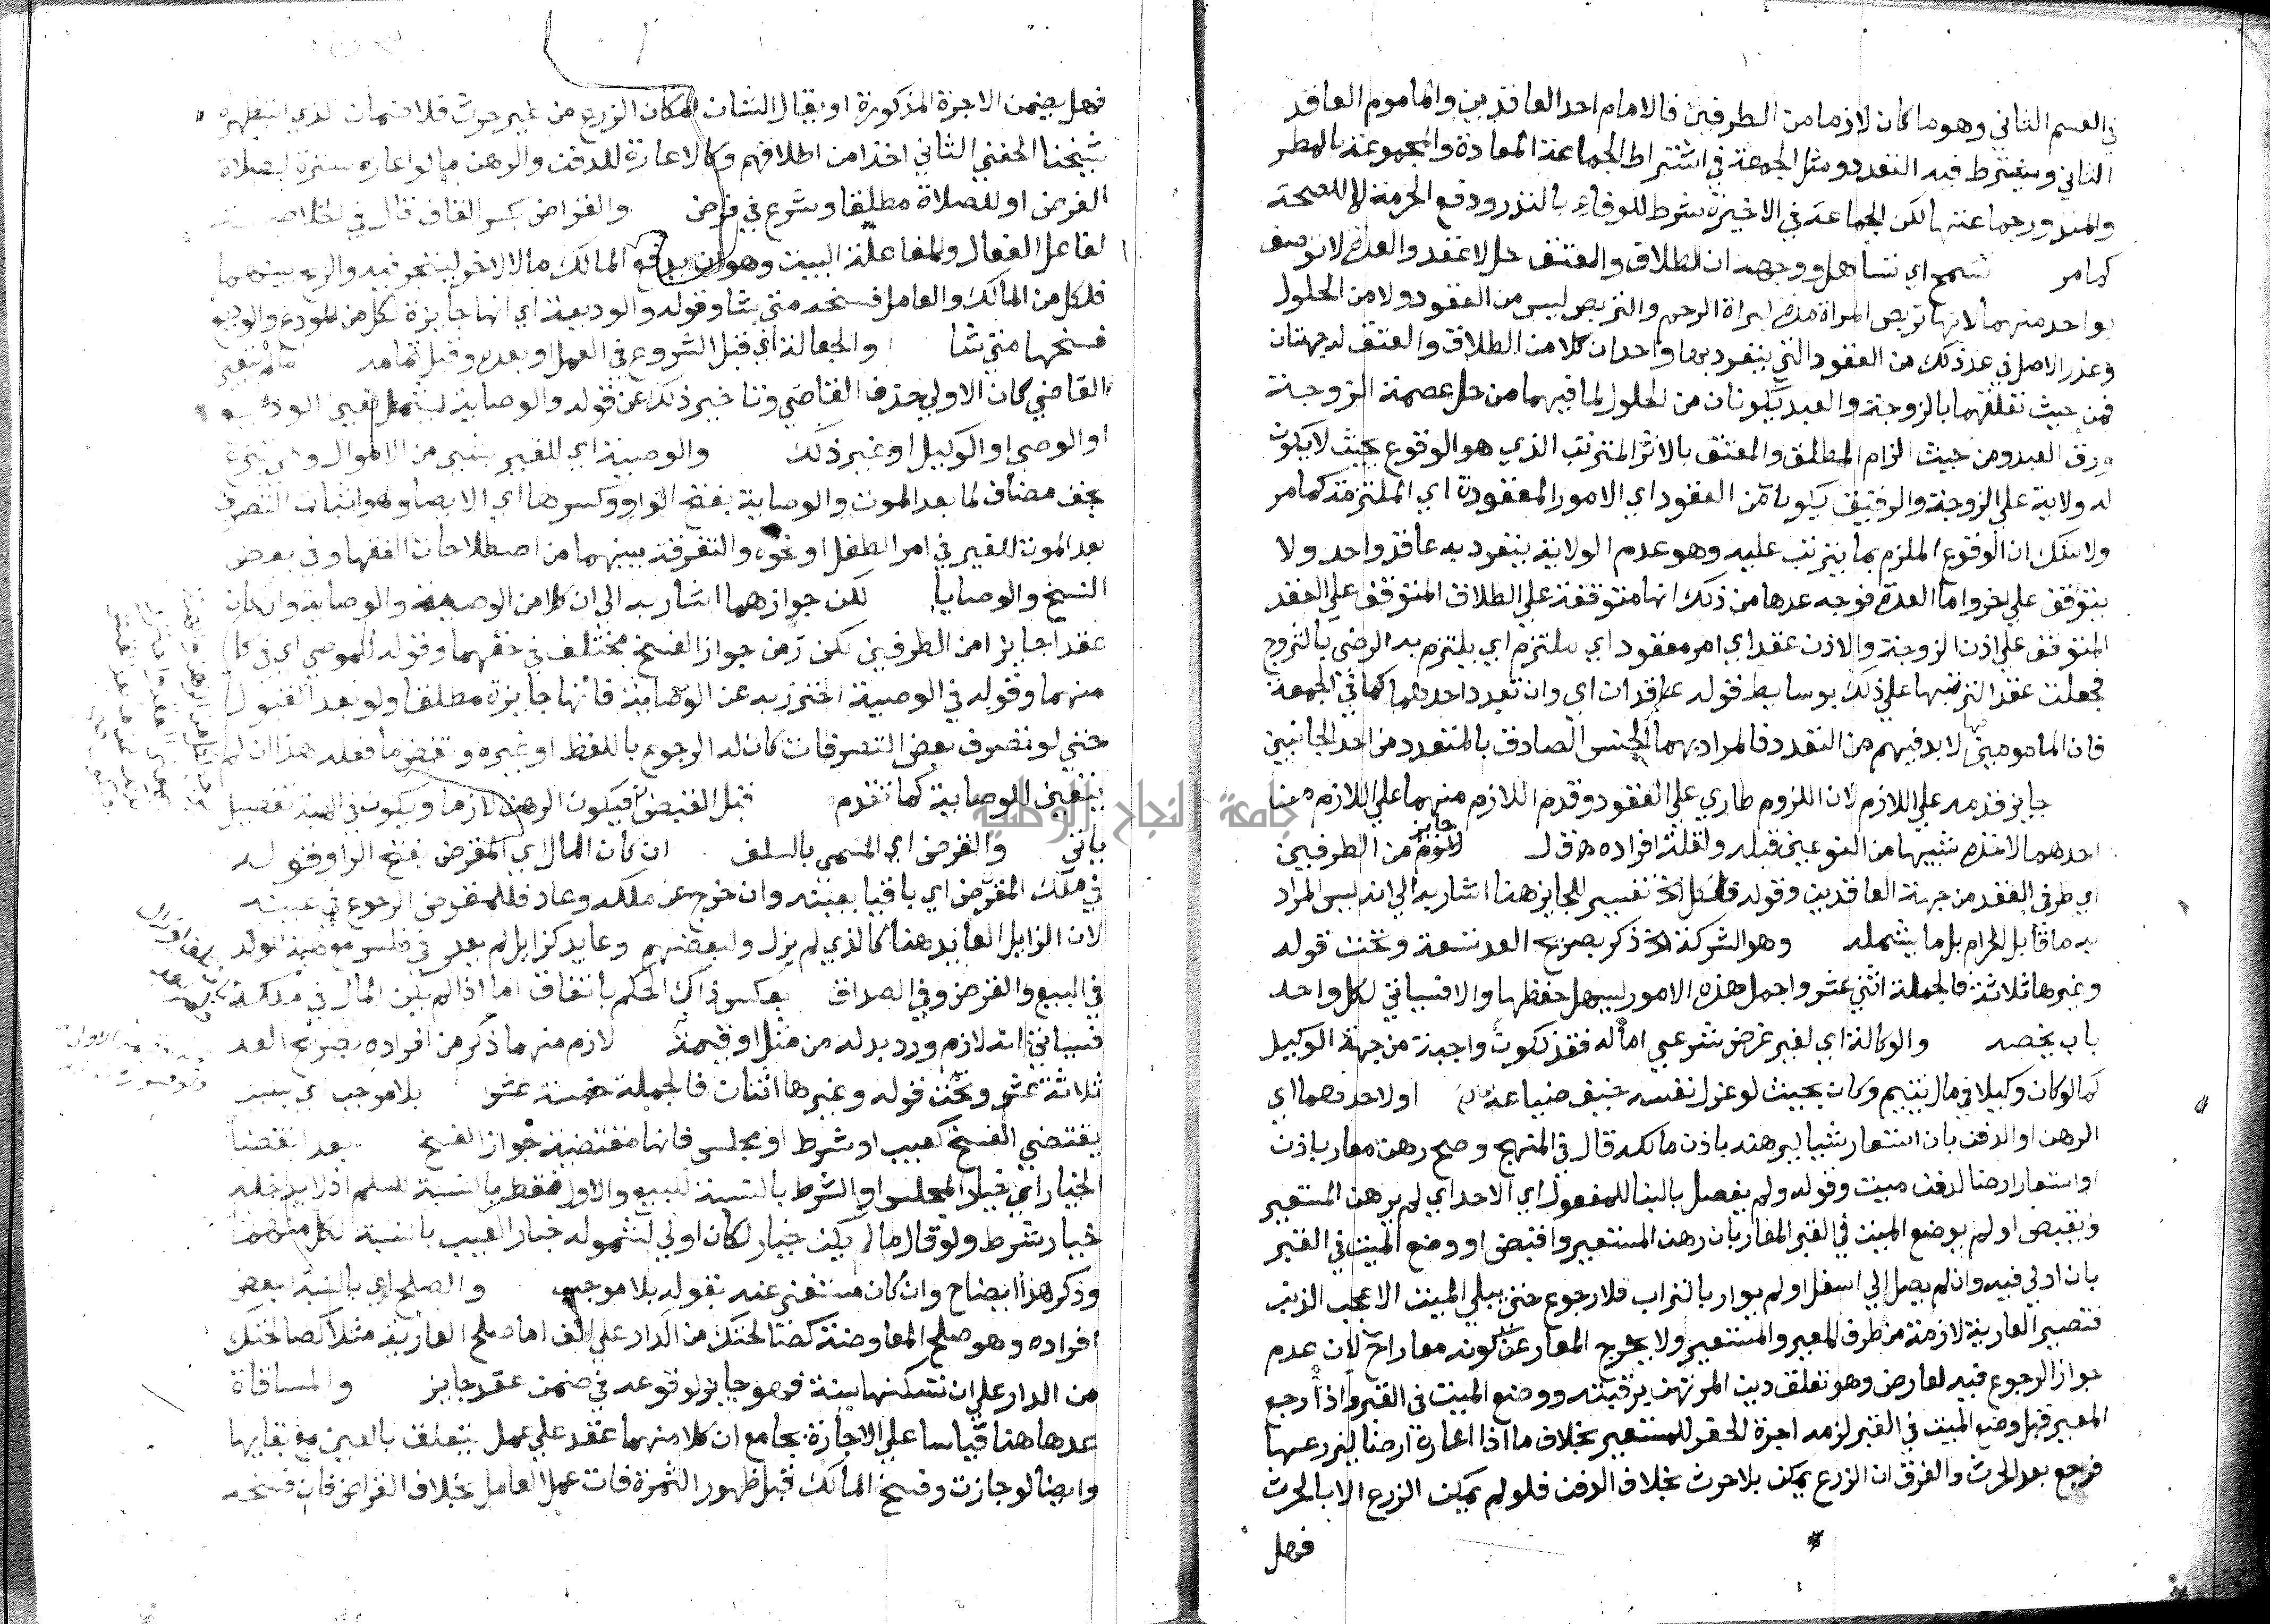 في القسم الثاني وهو ما كان لازما من الطرفين فالامام احد العاقدين والماموم العاقد
الثاني ويشترط فيه التعدد ومثل الجمعة في اشتراط الجماعة المعادة والمجموعة بالمطر
والمنذور جماعتها لكن الجماعة في الاخيرة شرط للوفاء بالنذر ودفع الحرمة لا للصحة
كما مر تسمح اي تساهل ووجهه ان الطلاق والعتق حل لا عقد والعدة لا توصف
بواحد منهما لانها تربص المراة مدة لبراة الرحم والتربص ليس من العقود ولا من الحلول
وعذر الاصل في عد ذلك من العقود التي ينفرد بها واحد ان كلا من الطلاق والعتق له جهتان
فمن حيث تعلقهما بالزوجة والعبد يكونان من الحلول لما فيهما من حل عصمة الزوجة
ورق العبد ومن حيث الزام المطلق والمعتق بالاثر المترتب الذي هو الوقوع بحيث لا يكون
له ولاية على الزوجة والرقيق يكونان من العقود اي الامور المعقودة اي الملتزمة كما مر
ولا شك ان الوقوع الملزم بما يترتب عليه وهو عدم الولاية ينفرد به عاقد واحد ولا
يتوقف على اخر واما العدة فوجه عدها من ذلك انها متوقفة على الطلاق المتوقف على العقد
المتوقف على اذن الزوجة والاذن عقد اي امر معقود اي ملتزم اي يلتزم به الرضى بالتزوج
فجعلت عقدا لترتبها على ذلك بوسايط قوله عاقدان اي وان تعدد احدهما كما في الجمعة
فان المامومين فيها لا بد فيهم من التعدد فالمراد بهما الجنس الصادق بالمتعدد من احد الجانبين
جايز قدمه على اللازم لان اللزوم طاري على العقود وقدم اللازم منهما على اللازم من
احدهما لاخذه شبيها من النوعين قبله ولقلة افراده قوله جايز من الطرفين
اي طرفي العقد من جهة العاقدين وقوله فلكل الخ تفسير للجايز هنا اشار به الى انه ليس المراد
به ما قابل الحرام بل ما يشمله وهو الشركة الخ ذكر بصريح العد تسعة وتحت قوله
وغيرها ثلاثة فالجملة اثني عشر واجمل هذه الامور ليسهل حفظها والا فسياتي لكل واحد
باب يخصه والوكالة اي لغير غرض شرعي اما له فقد تكون واجبة من جهة الوكيل
كما لو كان وكيلا في مال يتيم وكان بحيث لو عزل نفسه خيف ضياعه او لاحدهما اي
الرهن او الدفن بان استعار شيا ليرهنه باذن مالكه قال في المنهج وصح رهن معار باذن
او استعار ارضا لدفن ميت وقوله ولم يفصل بالبنا للمفعول اي الاحد اي لم يرهن المستعير
ويقبض او لم يوضع الميت في القبر المعار بان رهن المستعير واقبض او وضع الميت في القبر
بان ادلي فيه وان لم يصل الى اسفل او لم يوار بالتراب فلا رجوع حتى يبلى الميت الا عجب الذنب
فتصير العارية لازمة من طرف المعير والمستعير ولا يخرج المعار عن كونه معارا لان عدم
جواز الرجوع فيه لعارض وهو تعلق دين المرتهن برقبته ووضع الميت في القبر واذا رجع
المعير قبل وضع الميت في القبر لزمه اجرة الحفر للمستعير بخلاف ما اذا اعاره ارضا ليزرعها
فرجع بعد الحرث والفرق ان الزرع يمكن بلا حرث بخلاف الدفن فلو لم يمكن الزرع الا بالحرث
فهل
فهل يضمن الاجرة المذكورة او يقال الشان امكان الزرع من غير حرث فلا ضمان الذي استظهره
شيخنا الحفني الثاني اخذا من اطلاقهم وكالاعارة للدفن والرهن ما لو اعاره سترة لصلاة
الفرض او للصلاة مطلقا وشرع في فرض والقراض بكسر القاف قال في الخلاصة
لفاعل الفعال والمفاعلة البيت وهو ان يدفع المالك مالا لاخر ليتجر فيه والربح بينهما
فلكل من المالك والعامل فسخه متى شا وقوله والوديعة اي انها جايزة لكل من المودع والوديع
فسخها متى شا والجعالة اي قبل الشروع في العمل او بعده وقبل تمامه ما لم يتعين
القاضي كان الاولى حذف القاضي وتاخير ذلك عن قوله والوصاية ليشمل تعين الوديع
او الوصي او الوكيل او غير ذلك والوصية اي للغير بشي من الاموال وهي تبرع
بحق مضاف لما بعد الموت والوصاية بفتح الواو وكسرها اي الايصا وهو اثبات التصرف
بعد الموت للغير في امر الطفل او نحوه والتفرقة بينهما من اصطلاحات الفقها وفي بعض
النسخ والوصايا لكن جوازهما اشار به الى ان كلا من الوصية والوصاية وان كان
عقدا جايزا من الطرفين لكن زمن جواز الفسخ مختلف في حقهما وقوله الموصي اي في كل
منهما وقوله في الوصية احترز به عن الوصاية فانها جايزة مطلقا ولو بعد القبول
حتى لو تصرف بعض التصرفات كان له الرجوع باللفظ او غيره ونقض ما فعله هذا ان لم
يتعين الوصاية كما تقدم قبل القبض فيكون الرهن لازما ويكون في الهبة تفصيل
ياتي والقرض اي المسمى بالسلف ان كان المال اي المقرض بفتح الرا وقوله
في ملك المقترض اي باقيا بعينه وان خرج عن ملكه وعاد فللمقرض الرجوع في عينه
لان الزايل العايد هنا كالذي لم يزل ولبعضهم وعايد كزايل لم يعد في فلس مع هبة للولد
في البيع والقرض وفي الصداق بعكس ذاك الحكم باتفاق اما اذا لم يكن المال في ملكه
فسياتي انه لازم ورد بدله من مثل او قيمة لازم منهما ذكر من افراده بصريح العد
ثلاثة عشر وتحت قوله وغيرها اثنان فالجملة خمسة عشر بلا موجب اي بسبب
يقتضي الفسخ كعيب او شرط او مجلس فانها مقتضية جواز الفسخ بعد انقضا
الخيار اي خيار المجلس او الشرط بالنسبة للبيع والاول فقط بالنسبة للسلم اذ لا يدخله
خيار شرط ولو قال ما لم يكن خيار لكان اولى لشموله خيار العيب بالنسبة لكل منهما
وذكر هذا ايضاح وان كان مستغنى عنه بقوله بلا موجب والصلح اي بالنسبة لبعض
افراده وهو صلح المعاوضة كصالحتك من الدار على الف اما صلح العارية مثلا كصالحتك
من الدار على ان تسكنها سنة فهو جايز لوقوعه في ضمن عقد جايز والمساقاة
عدها هنا قياسا على الاجارة بجامع ان كلا منهما عقد على عمل يتعلق بالعين مع بقايها
وايضا لو جازت وفسخ المالك قبل ظهور الثمرة فات عمل العامل بخلاف القراض فان فسخه
جامعة النجاح الوطنية